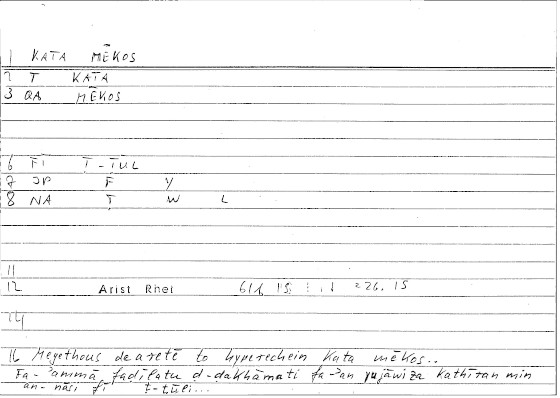 1 KATA MĒKOS
2 T KATA
3 QA MĒKOS
6 FĪ Ṭ-ṬŪL
7 JP F Y
8 NA Ṭ W L
11
12 Arist Rhet 61b 15 226.15
14
16 Megethous de aretē to hyperechein kata mēkos..
Fa-ʾammā faḍīlatu ḍ-ḍakhāmati fa-ʾan yujāwiza kathīran min
an-nāsi fī ṭ-ṭūli...